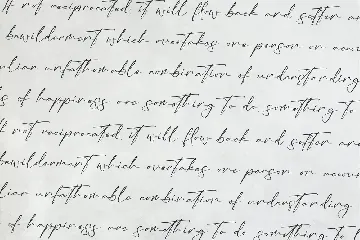 If not reciprocated, it will flow back and soften and
bewilderment which overtakes one person on
uliar unfathomable combination of understanding
s of happiness are something to do something to
If not reciprocated, it will flow back and soften and
bewilderment which overtakes one person on
liar unfathomable combination of understanding
of happiness are something to do, something to